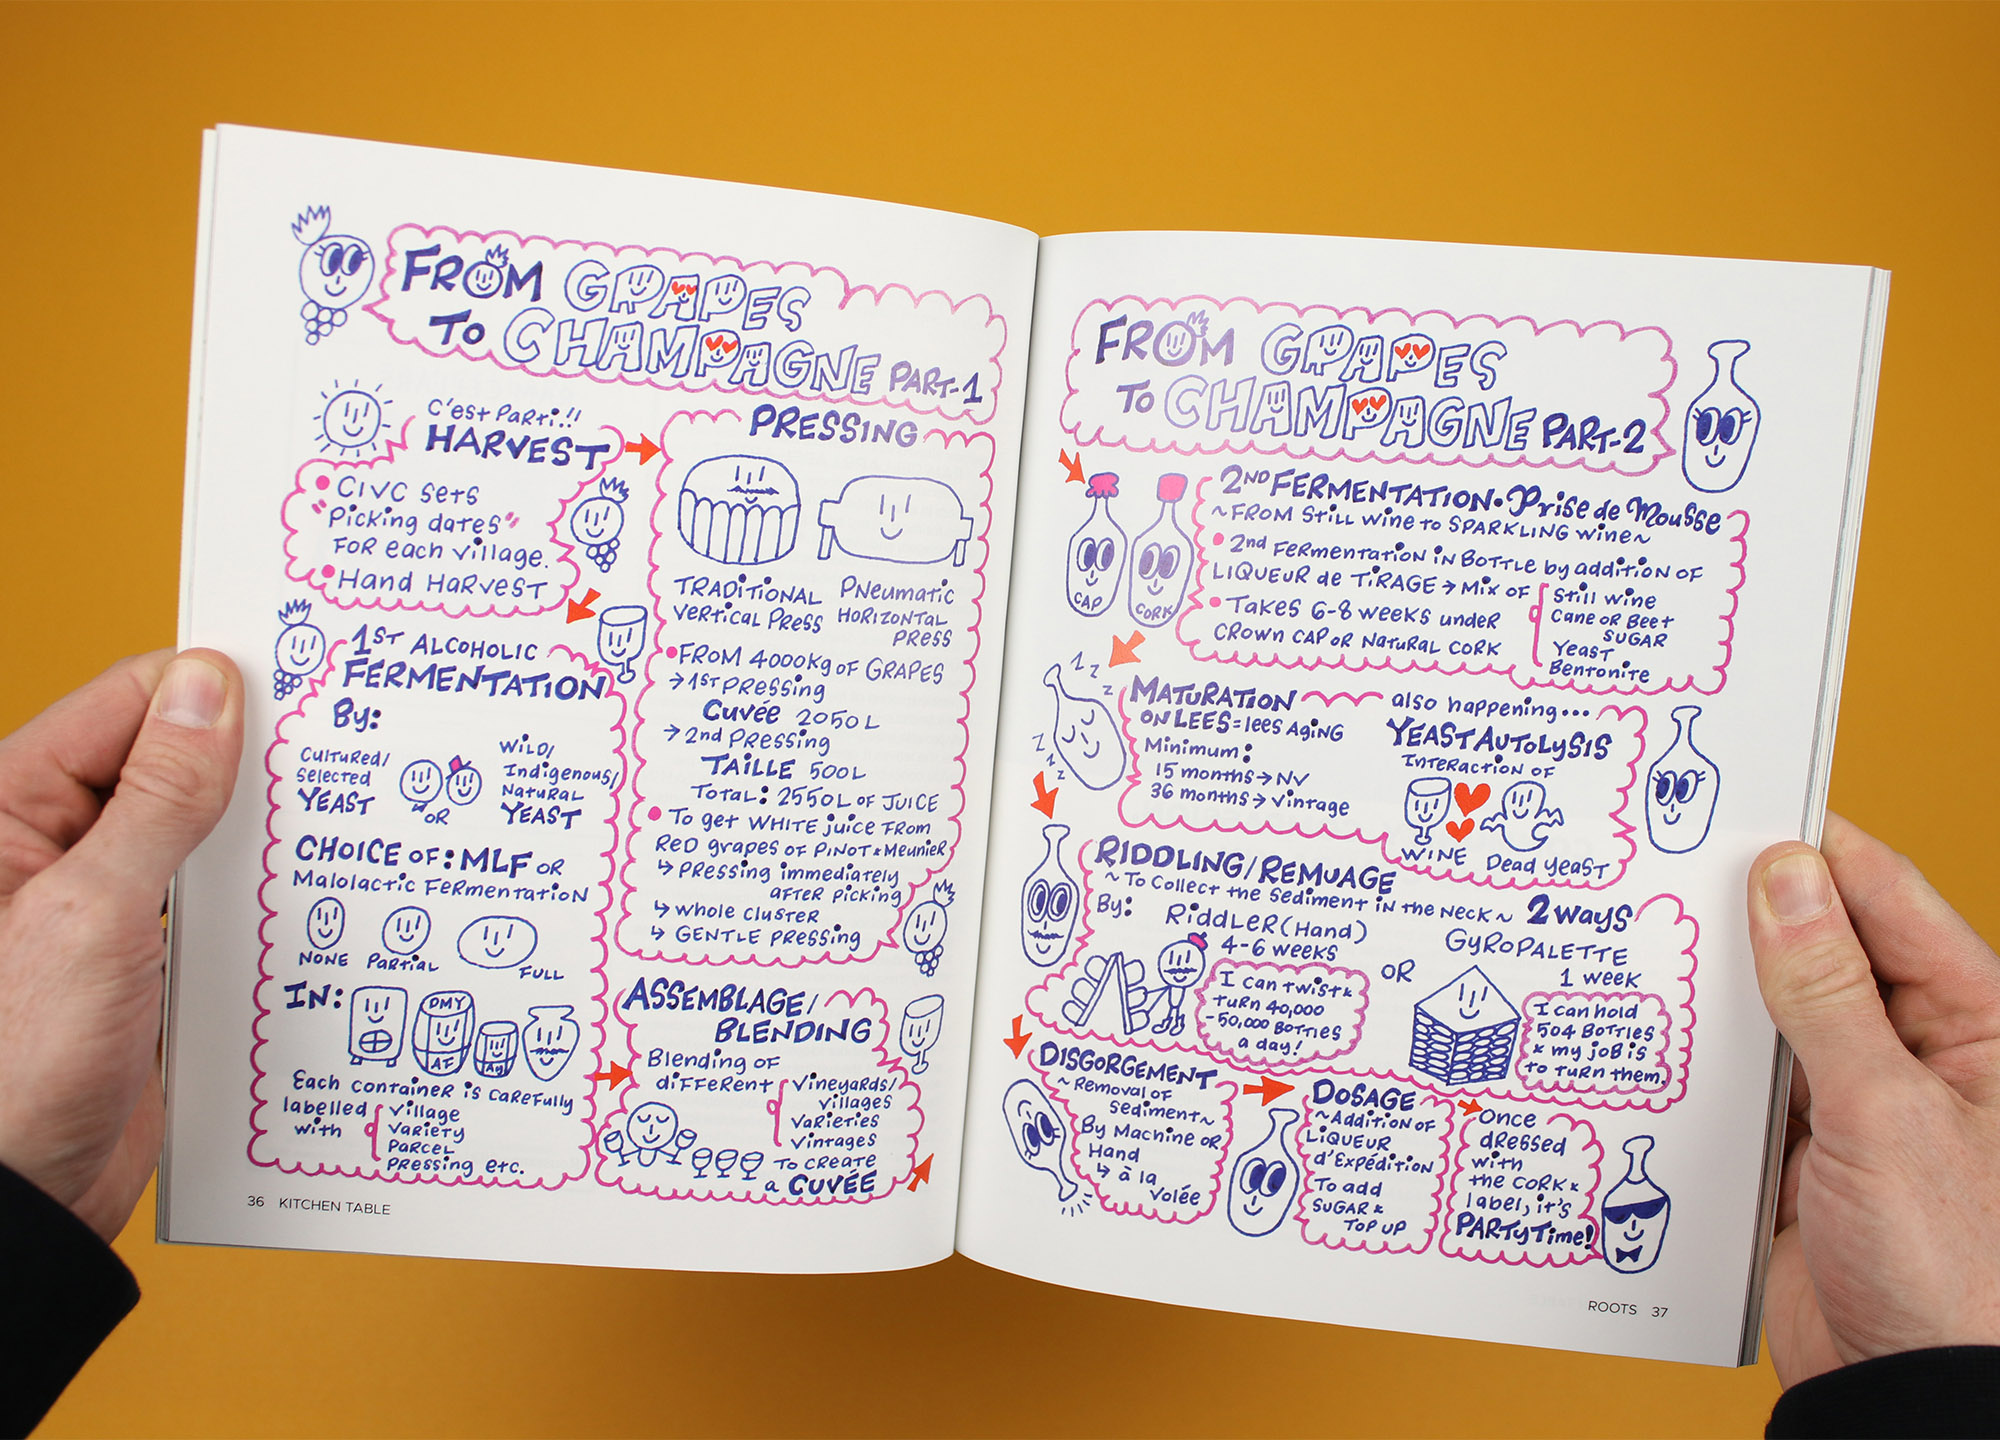 FROM GRAPES
TO CHAMPAGNE PART-1
C'est Parti!!
HARVEST
CIVC sets
"Picking dates"
FOR each village.
Hand HARVEST
PRESSING
TRADITIONAL
Vertical Press
Pneumatic
HORIZONTAL
PRESS
FROM 4000kg OF GRAPES
→1st Pressing
Cuvée 2050L
→2nd Pressing
TAILLE 500L
Total: 2550L OF JUICE
To get WHITE juice FROM
RED grapes OF PINOT & Meunier
↳ Pressing immediately
AFTER Picking
↳ whole cluster
↳ GENTLE Pressing
1ST ALCOHOLIC
FERMENTATION
By:
CULTURED/
Selected
YEAST
OR
WILD/
Indigenous/
NATURAL
YEAST
CHOICE OF: MLF OR
Malolactic Fermentation
NONE
Partial
FULL
IN:
DMY
AF
Ay
Each container is carefully
labelled
with
village
variety
parcel
pressing etc.
ASSEMBLAGE/
BLENDING
Blending of
different
vineyards/
villages
varieties
vintages
TO CREATE
a CUVÉE
36 KITCHEN TABLE
FROM GRAPES
TO CHAMPAGNE PART-2
CAP
CORK
2ND FERMENTATION • Prise de Mousse
~FROM Still wine to SPARKLING wine~
2nd Fermentation in Bottle by addition of
LIQUEUR de TIRAGE → Mix of
Still wine
Cane or Beet
SUGAR
Yeast
Bentonite
Takes 6-8 weeks under
crown cap or natural cork
1 z z
z z z z
MATURATION
ON LEES = lees Aging
Minimum:
15 months → NV
36 months → vintage
also happening...
YEAST AUTOLYSIS
Interaction of
WINE
Dead yeast
RIDDLING/REMUAGE
~ To collect the sediment in the neck ~ 2 ways
By:
RIDDLER (Hand)
4-6 weeks
I can twist &
turn 40,000
-50,000 Bottles
a day!
OR
GYROPALETTE
1 week
I can hold
504 Bottles
& my job is
to turn them.
DISGORGEMENT
~ Removal of
sediment ~
By Machine or
Hand
↳ à la
volée
DOSAGE
~Addition of
Liqueur
d'Expédition
To add
sugar &
top up
Once
dressed
with
the cork &
label, it's
PARTY Time!
ROOTS 37